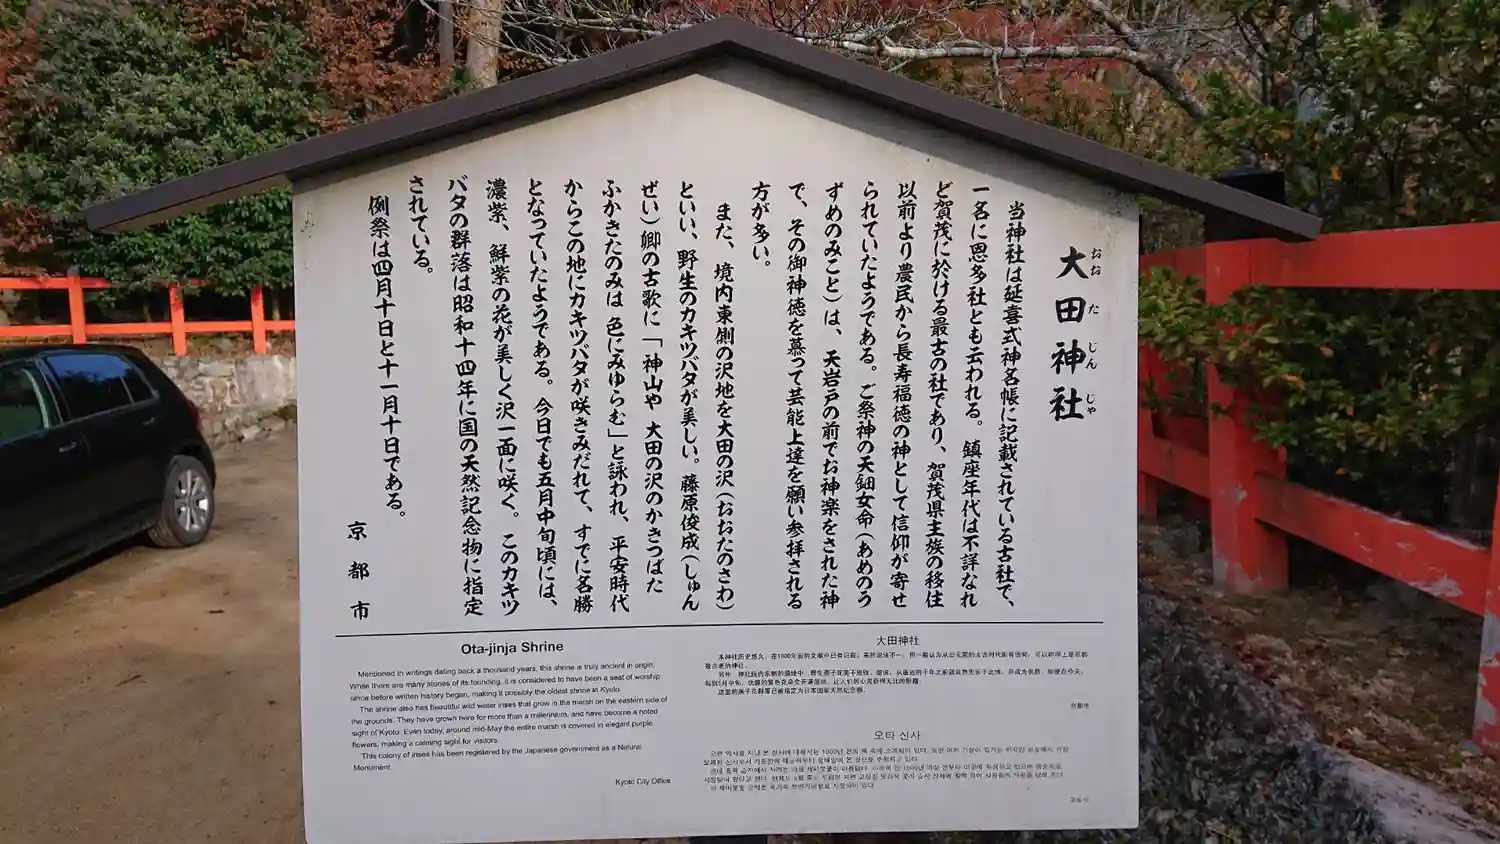 大田神社
おおたじんじゃ
当神社は延喜式神名帳に記載されている古社で、
一名に恩多社とも云われる。鎮座年代は不詳なれ
ど賀茂に於ける最古の社であり、賀茂県主族の移住
以前より農民から長寿福徳の神として信仰が寄せ
られていたようである。ご祭神の天鈿女命（あめのう
ずめのみこと）は、天岩戸の前でお神楽をされた神
で、その御神徳を慕って芸能上達を願い参拝される
方が多い。
また、境内東側の沢地を大田の沢（おおたのさわ）
といい、野生のカキツバタが美しい。藤原俊成（しゅん
ぜい）卿の古歌に「神山や 大田の沢のかきつばた
ふかきたのみは 色にみゆらむ」と詠われ、平安時代
からこの地にカキツバタが咲きみだれて、すでに名勝
となっていたようである。今日でも五月中旬頃には、
濃紫、鮮紫の花が美しく沢一面に咲く。このカキツ
バタの群落は昭和十四年に国の天然記念物に指定
されている。
例祭は四月十日と十一月十日である。
京都市
Ota-jinja Shrine
Mentioned in writings dating back a thousand years, this shrine is truly ancient in origin.
While there are many stories of its founding, it is considered to have been a seat of worship
since before written history began, making it possibly the oldest shrine in Kyoto.
The shrine also has beautiful wild water irises that grow in the marsh on the eastern side of
the grounds. They have grown here for more than a millennium, and have become a noted
sight of Kyoto. Even today, around mid-May the entire marsh is covered in elegant purple
flowers, making a calming sight for visitors.
This colony of irises has been registered by the Japanese government as a Natural
Monument.
Kyoto City Office
大田神社
京都市
오타 신사
교토시